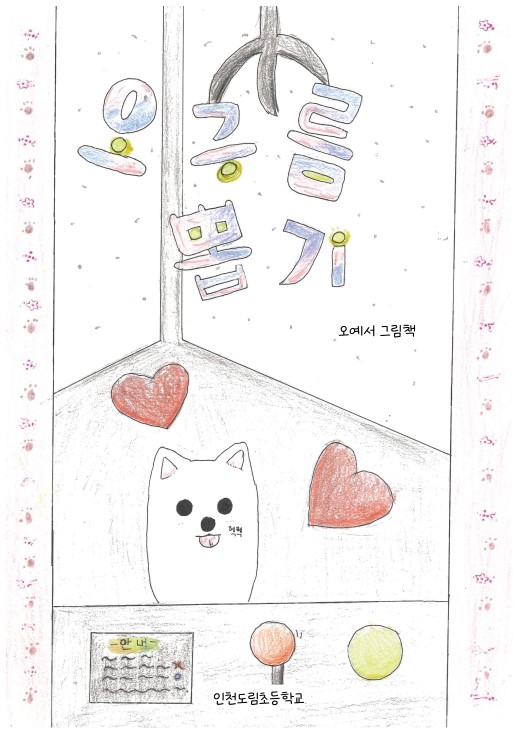 오구름
뽑기
오예서 그림책
헥헥
안내
인천도림초등학교